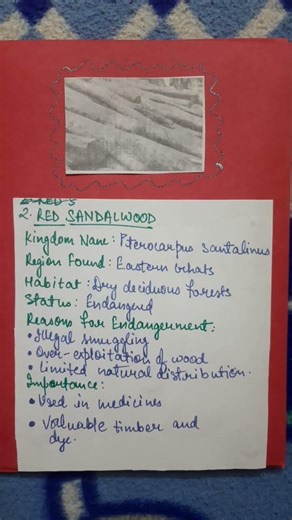 2. RED SANDALWOOD
Kingdom Name: Pterocarpus santalinus
Region Found: Eastern Ghats
Habitat: Dry deciduous forests
Status: Endangered
Reasons for Endangerment:
• Illegal smuggling
• Over-exploitation of wood
• Limited natural distribution.
Importance:
• Used in medicines
• Valuable timber and
dye.